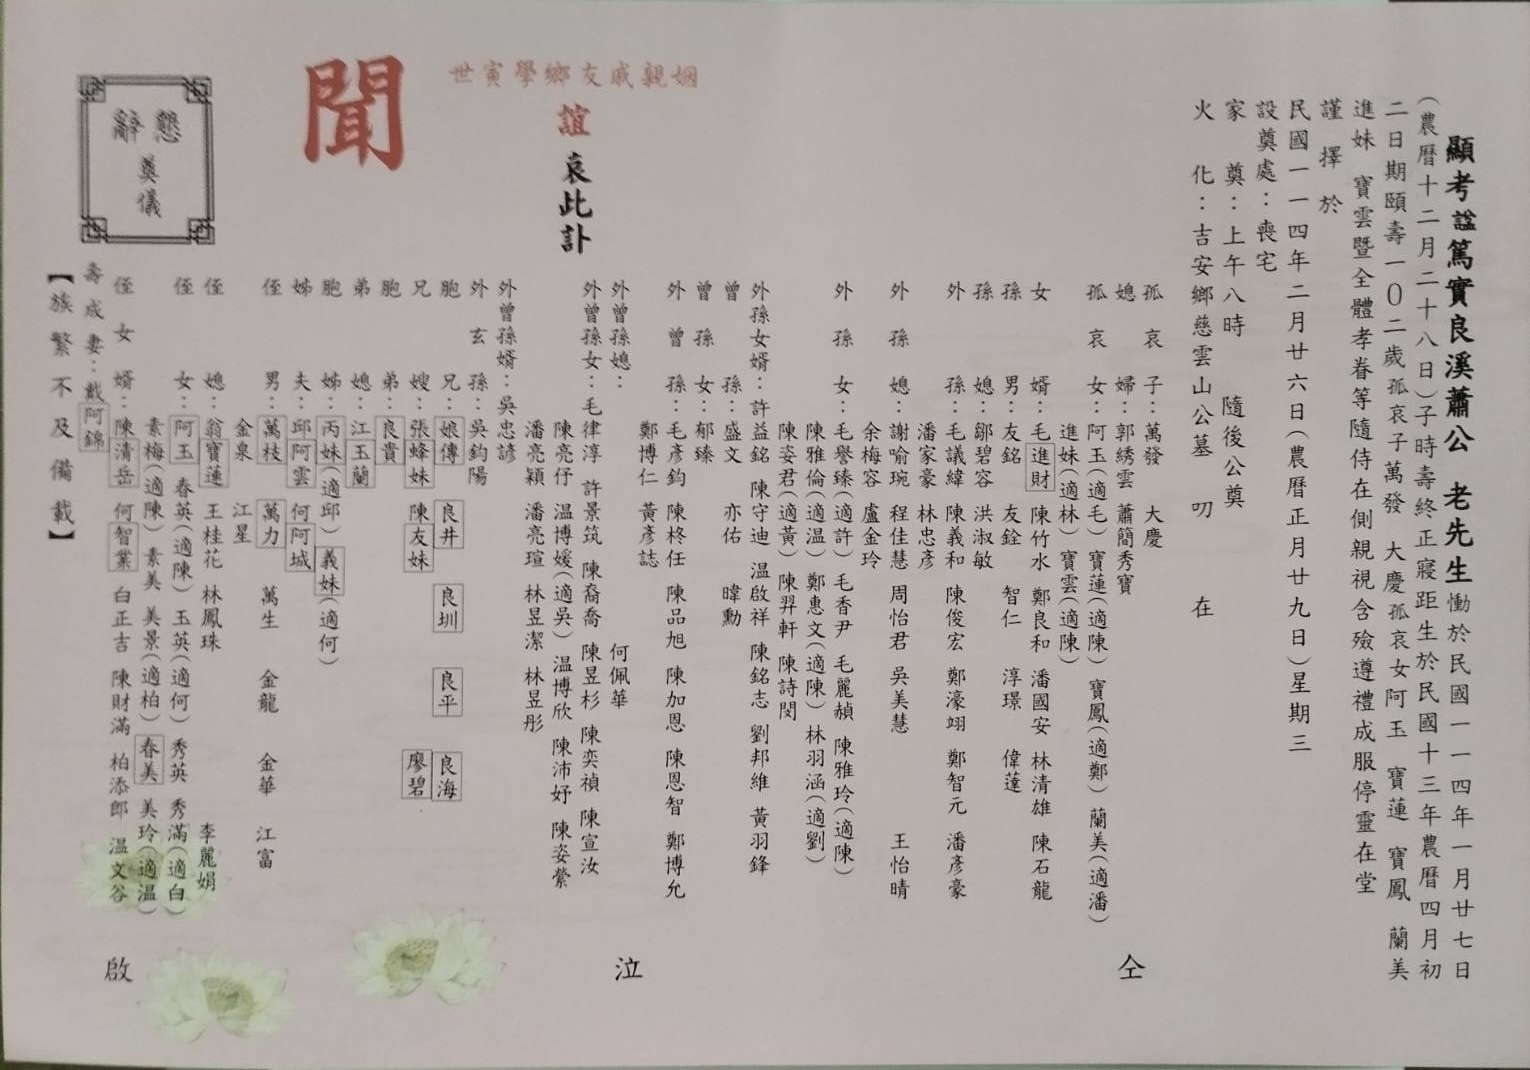 顯考諡篤實良溪蕭公 老先生慟於民國一一四年一月廿七日
(農曆十二月二十八日)子時壽終正寢距生於民國十三年農曆四月初
二日期頤壽一0二歲孤哀子萬發 大慶孤哀女阿玉 寶蓮 寶鳳 蘭美
進妹 寶雲暨全體孝眷等隨侍在側親視含殮遵禮成服停靈在堂
謹擇於
民國一一四年二月廿六日(農曆正月廿九日)星期三
設奠處:喪宅
家 奠:上午八時 隨後公奠
火 化:吉安鄉慈雲山公墓 叨 在
孤哀子:萬發 大慶
媳婦:郭綉雲 蕭簡秀寶
孤哀女:阿玉(適毛) 寶蓮(適陳) 寶鳳(適鄭) 蘭美(適潘)
進妹(適林) 寶雲(適陳)
女婿:毛進財 陳竹水 鄭良和 潘國安 林清雄 陳石龍
孫男:友銘 友銓 智仁 淳璟 偉蓬
孫媳:鄒碧容 洪淑敏
外孫:毛議緯 陳義和 陳俊宏 鄭濠翊 鄭智元 潘彥豪
潘家豪 林忠彥
外孫媳:謝喻琬 程佳慧 周怡君 吳美慧 王怡晴
余梅容 盧金玲
外孫女:毛譽臻(適許) 毛香尹 毛麗頳 陳雅玲(適陳)
陳雅倫(適温) 鄭惠文(適陳) 林羽涵(適劉)
陳姿君(適黃) 陳羿軒 陳詩閔
外孫女婿:許益銘 陳守迪 温啟祥 陳銘志 劉邦維 黃羽鋒
曾孫:盛文 亦佑 暐勳
曾孫女:郁臻
外曾孫:毛彥鈞 陳柊任 陳品旭 陳加恩 陳恩智 鄭博允
鄭博仁 黃彥誌
外曾孫媳: 何佩華
外曾孫女:毛律淳 許景筑 陳裔喬 陳昱杉 陳奕禎 陳宣汝
陳亮伃 温博媛(適吳) 温博欣 陳沛妤 陳姿縈
潘亮穎 潘亮瑄 林昱潔 林昱彤
外曾孫婿:吳忠諺
外玄孫:吳鈞陽
胞兄:娘傳 良井 良圳 良平 良海
兄嫂:張蜂妹 陳友妹 廖碧
胞弟:良貴
弟媳:江玉蘭
胞姊妹:丙妹(適邱) 義妹(適何)
姊夫:邱阿雲 何阿城
侄男:萬枝 萬力 萬生 金龍 金華 江富
金泉 江星
侄媳:翁寶蓮 王桂花 林鳳珠 李麗娟
侄女:阿玉 春英(適陳) 玉英(適何) 秀英 秀滿(適白)
素梅(適陳) 素美 美景(適柏) 春美 美玲(適温)
侄女婿:陳清岳 何智業 白正吉 陳財滿 柏添郎 温文谷
壽成妻:戴阿錦
【族繁不及備載】
仝 泣 啟
姻親戚友鄉學寅世
誼 哀此訃
聞
懇辭
奠儀